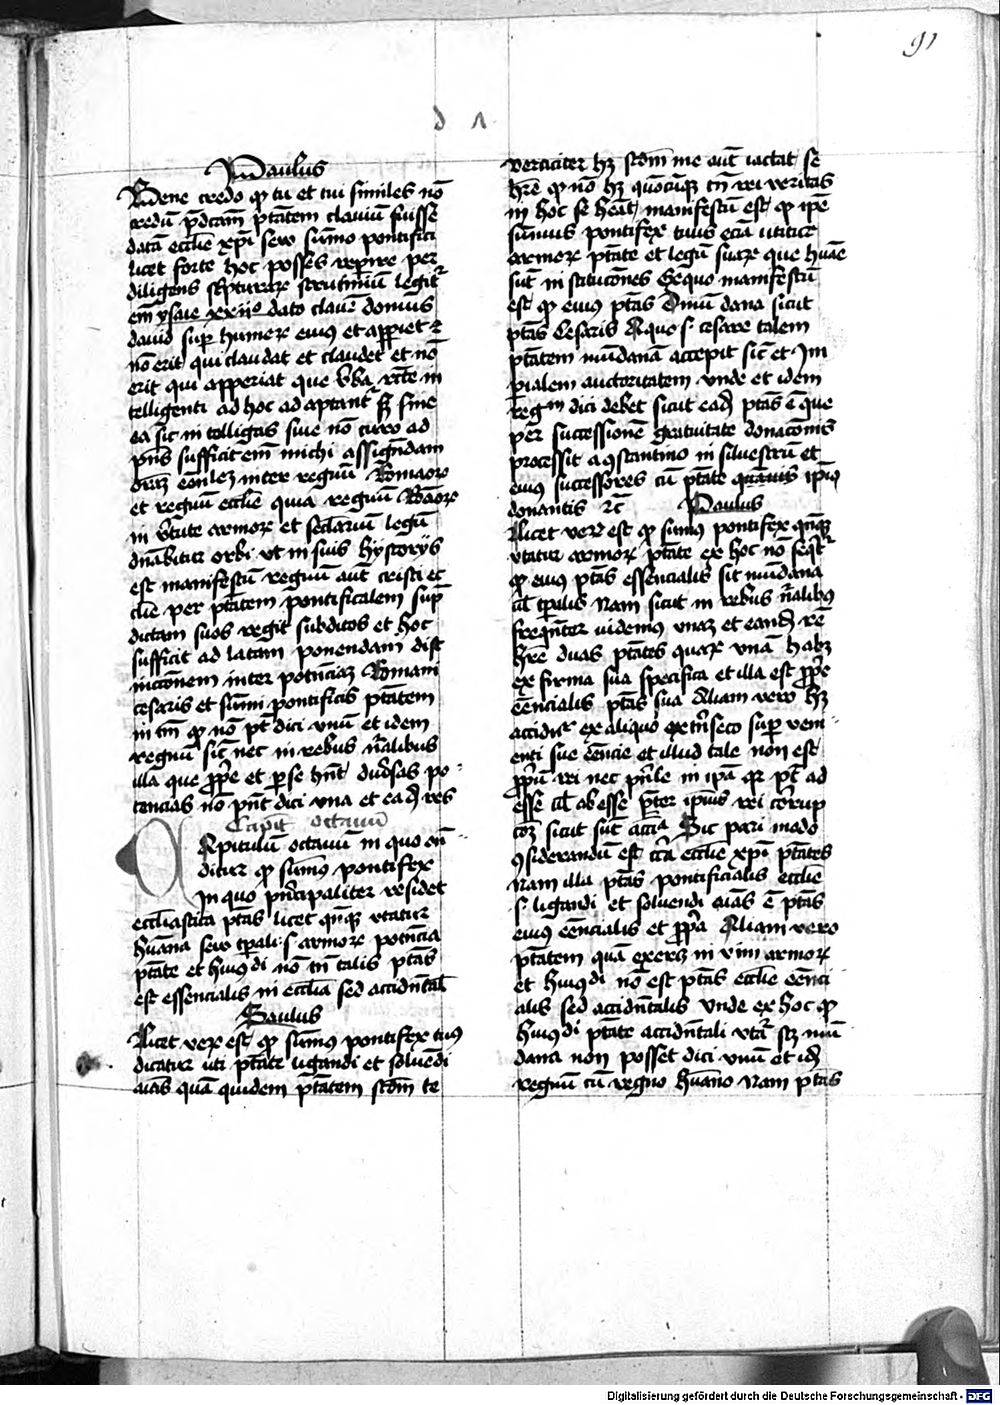 91
d 1
Paulus
Bene credo qꝫ tu et tui similes nō
credū p̄dcam ptātem claviū fuisse
datā ecclie xp̄i seu sūmo pontifici
licet forte hoc posses reperire per
diligens scpturarꝫ scrutiniū legitr
em̄ ysaie xxiio dato clavē domus
david sup humerꝫ eius et apperiet ⁊
nō erit qui claudat et claudet et nō
erit qui apperiat que v̄ba rcte in
telligenti ad hoc adaptantr sꝫ sine
ea sic intelligas sive nō curo ad
pn̄s sufficit em̄ michi assignandam
inter regnū Romaorꝫ
et regnū ecclie quia regnū Romaorꝫ
in v̄tute armorꝫ et seclariū legū
dn̄abitur orbi ut in suis hystoriis
est manifestū regnū aūt cristi et
clie per ptātem pontificalem sup̄
dictam suos regit subditos et hoc
sufficit ad latam ponendam dist
inctionem inter potn̄ciaꝫ Romani
cesaris et sūmi pontificis ptātem
in tm̄ qꝫ nō pt̄ dici unū et idem
regnū sic nec in rebus n̄alibus
illa que pp̄e et per se hn̄t div̄sas po
tencias nō pn̄t dici una et eadꝫ res
Capt̄ octavū
Capitulū octavū in quo on̄
ditur qꝫ sūmꝰ pontifex
in quo pn̄cipaliter residet
ecclīastica ptās licet qn̄qꝫ utatur
hūana seu tpali s armorꝫ potn̄cia
ptāte et huiusdi nō tn̄ talis ptās
est essencialis in ecclīa sed accidn̄tał
Saulus
Licet verꝫ est qꝫ sūmꝰ pontifex tuus
dicatur uti ptāte ligandi et solvēdi
aīas quā quidem ptātem scdm te
veraciter hꝫ scdm me aūt iactat se
hr̄e qꝫ nō hꝫ quocūqꝫ tn̄ rei veritas
in hoc se hēat manifestū est qꝫ ip̄e
sūmus pontifex tuus eciā utitur
armorꝫ ptāte et legū suarꝫ que hūae
sūt institucōnes Ex quo manifestū
est qꝫ eius ptās mūdana sicut
ptās Cesaris A quo s cesare talem
ptātem mūdanā accepit sic et Im
pialem auctoritatem unde et idem
regm dici debet sicut eadꝫ ptās ē que
per successionē gratuitate donacōnis
processit a ꝯstantino in silvestrū et
eius successores cū ptāte quāuis ipiꝰ
donantis etc̄
Paulus
Licet verꝫ est qꝫ sūmꝰ pontifex qn̄qꝫ
utatur armorꝫ ptāte ex hoc nō seqr̄
qꝫ eius ptās essencialis sit mūdana
ul tpalis Nam sicut in rebus n̄alibus
freqn̄ter videmus unaꝫ et eandꝫ rē
hr̄e duas ptātes quarꝫ unā habꝫ
ex forma sua specifica et illa est pp̄e
eēncialis ptās sua Aliam vero hꝫ
ex aliquo extn̄seco sup veni
enti sue eēncie et illud tale non est
pp̄iū rei nec in ip̄a qꝫ pt̄ ad
esse ul abesse p̄ter ipius rei corrup
coꝫ sicut sūt accīa Sic pari modo
ꝯsiderandū est circa ecclie xp̄i ptātes
Nam illa ptās pontificialis ecclie
s ligandi et solvendi aīas ē ptās
eius eēncialis et pp̄a Aliam vero
ptātem quā exercꝫ in vim armorꝫ
et huiusdi nō est ptās ecclie eēnci
alis sed accidn̄talis Unde ex hoc qꝫ
huiusdi ptāte accidn̄tali utr̄ scꝫ mū
dana non posset dici unū et idꝫ
regnū cū regno hūano Nam ptās
Digitalisierung gefördert durch die Deutsche Forschungsgemeinschaft - DFG